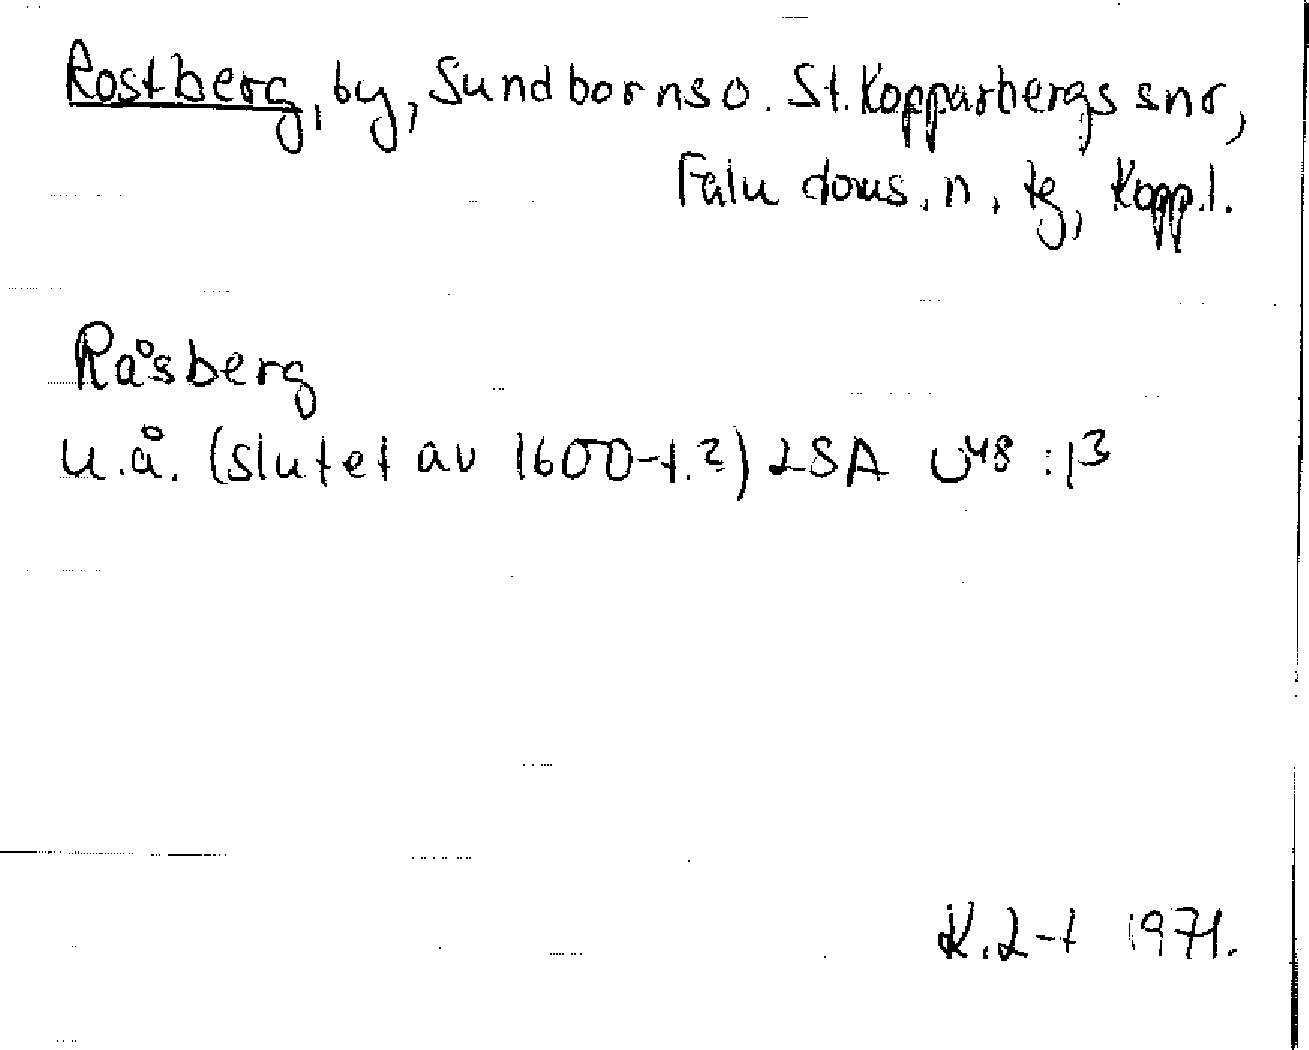 Rostberg, by, Sundborns o. St. Kopparbergs snr,
Falu doms. n. tg, Kopp.l.
Råsberg
u.å. (slutet av 1600-t.?) LSA U48:13
K.L-t 1971.